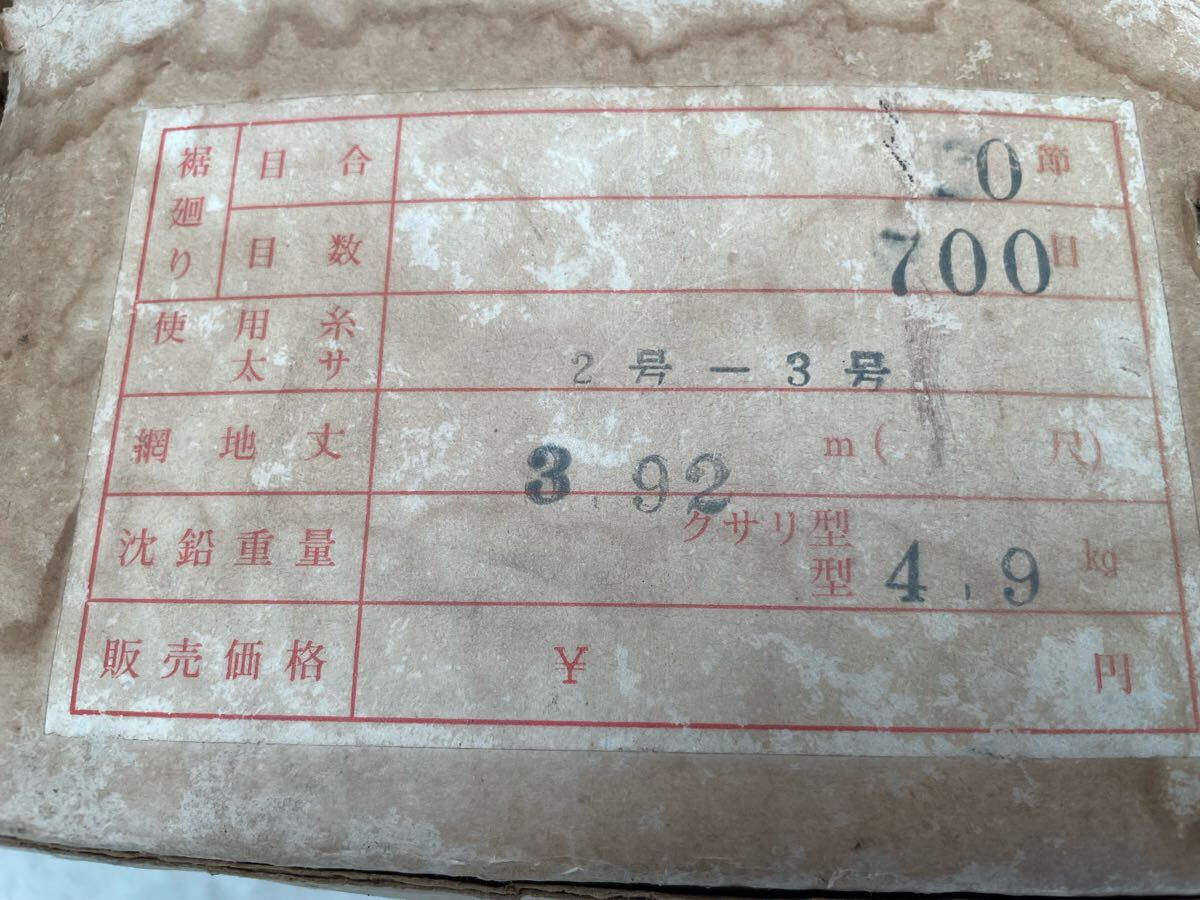 裾廻り
目合 20節
目数 700目
使用糸
太サ 2号-3号
網地丈 3.92 m( 尺)
沈鉛重量 クサリ型
型 4.9 kg
販売価格 ¥ 円